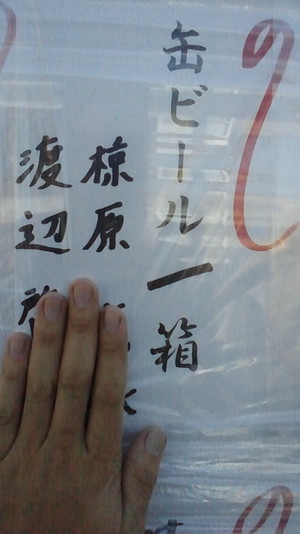 のし
缶ビール一箱
椋原
渡辺